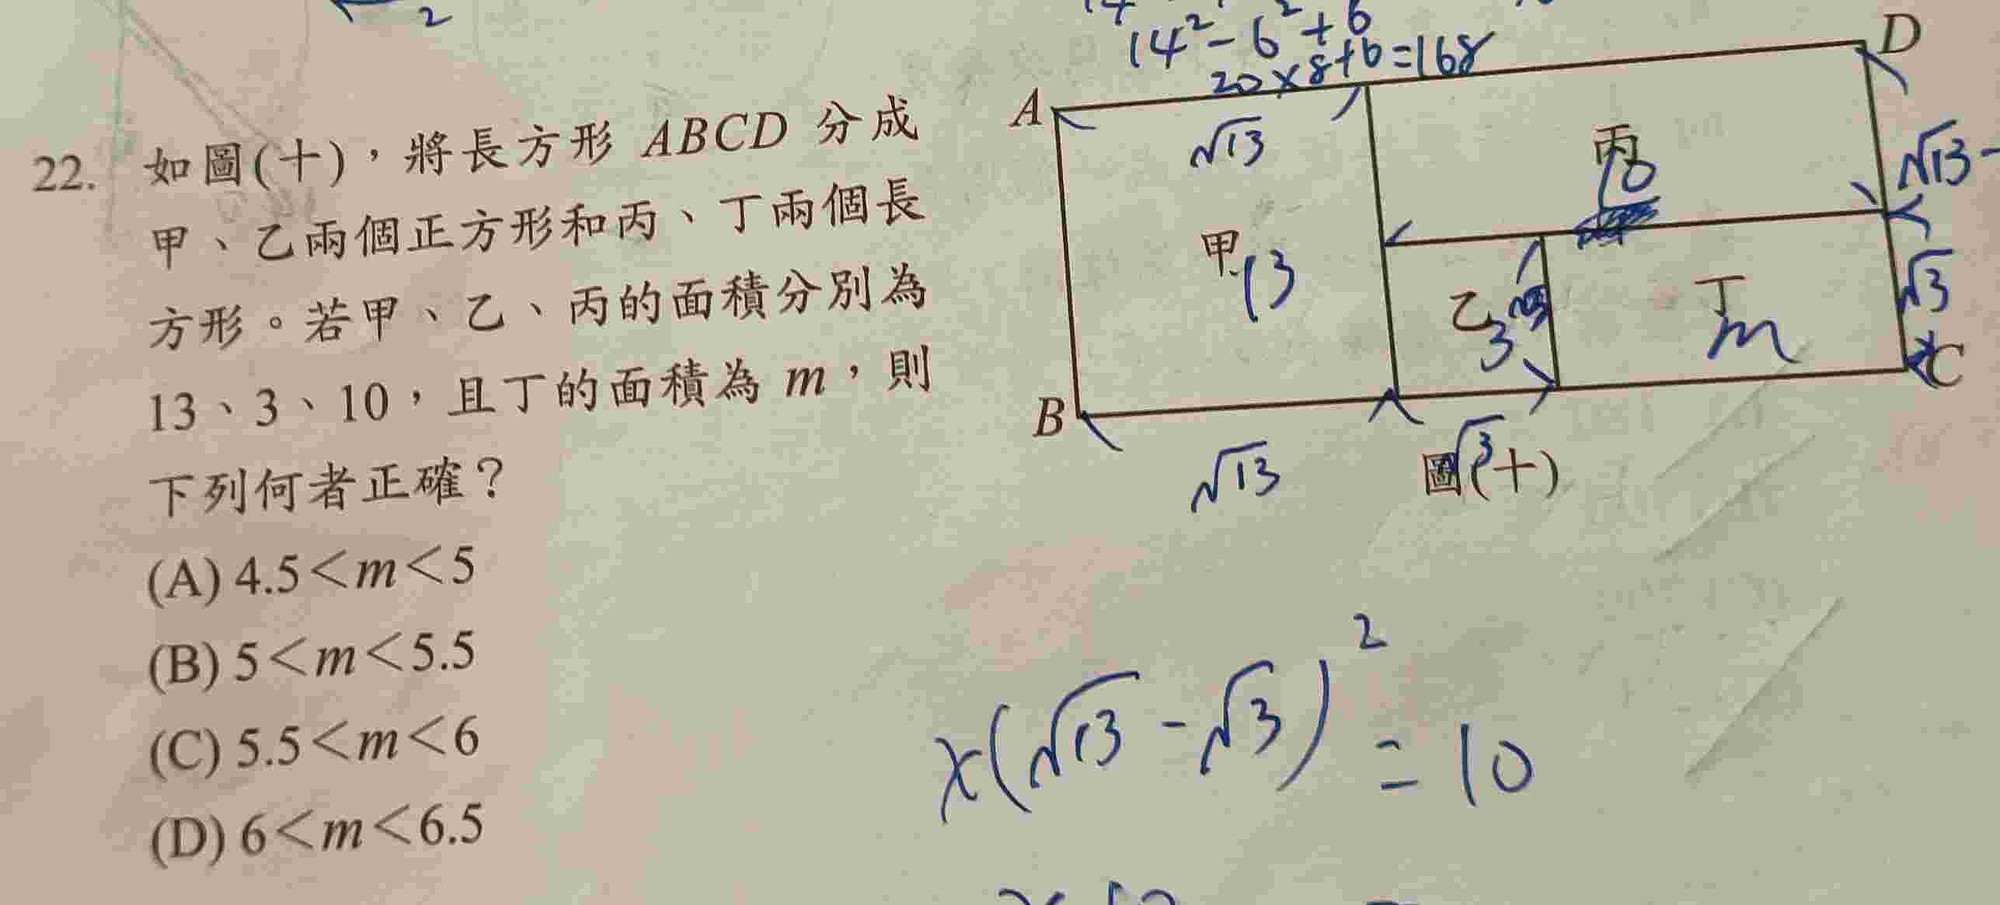 2
14² - 6² + 6
20 × 8 + 6 = 168
22. 如圖(十)，將長方形 ABCD 分成
甲、乙兩個正方形和丙、丁兩個長
方形。若甲、乙、丙的面積分別為
13、3、10，且丁的面積為 m，則
下列何者正確？
(A) 4.5＜m＜5
(B) 5＜m＜5.5
(C) 5.5＜m＜6
(D) 6＜m＜6.5
A
D
√13
丙
10
√13-
甲
13
乙
3
丁
m
√3
B
C
√13
√3
圖(十)
x(√13 - √3)² = 10